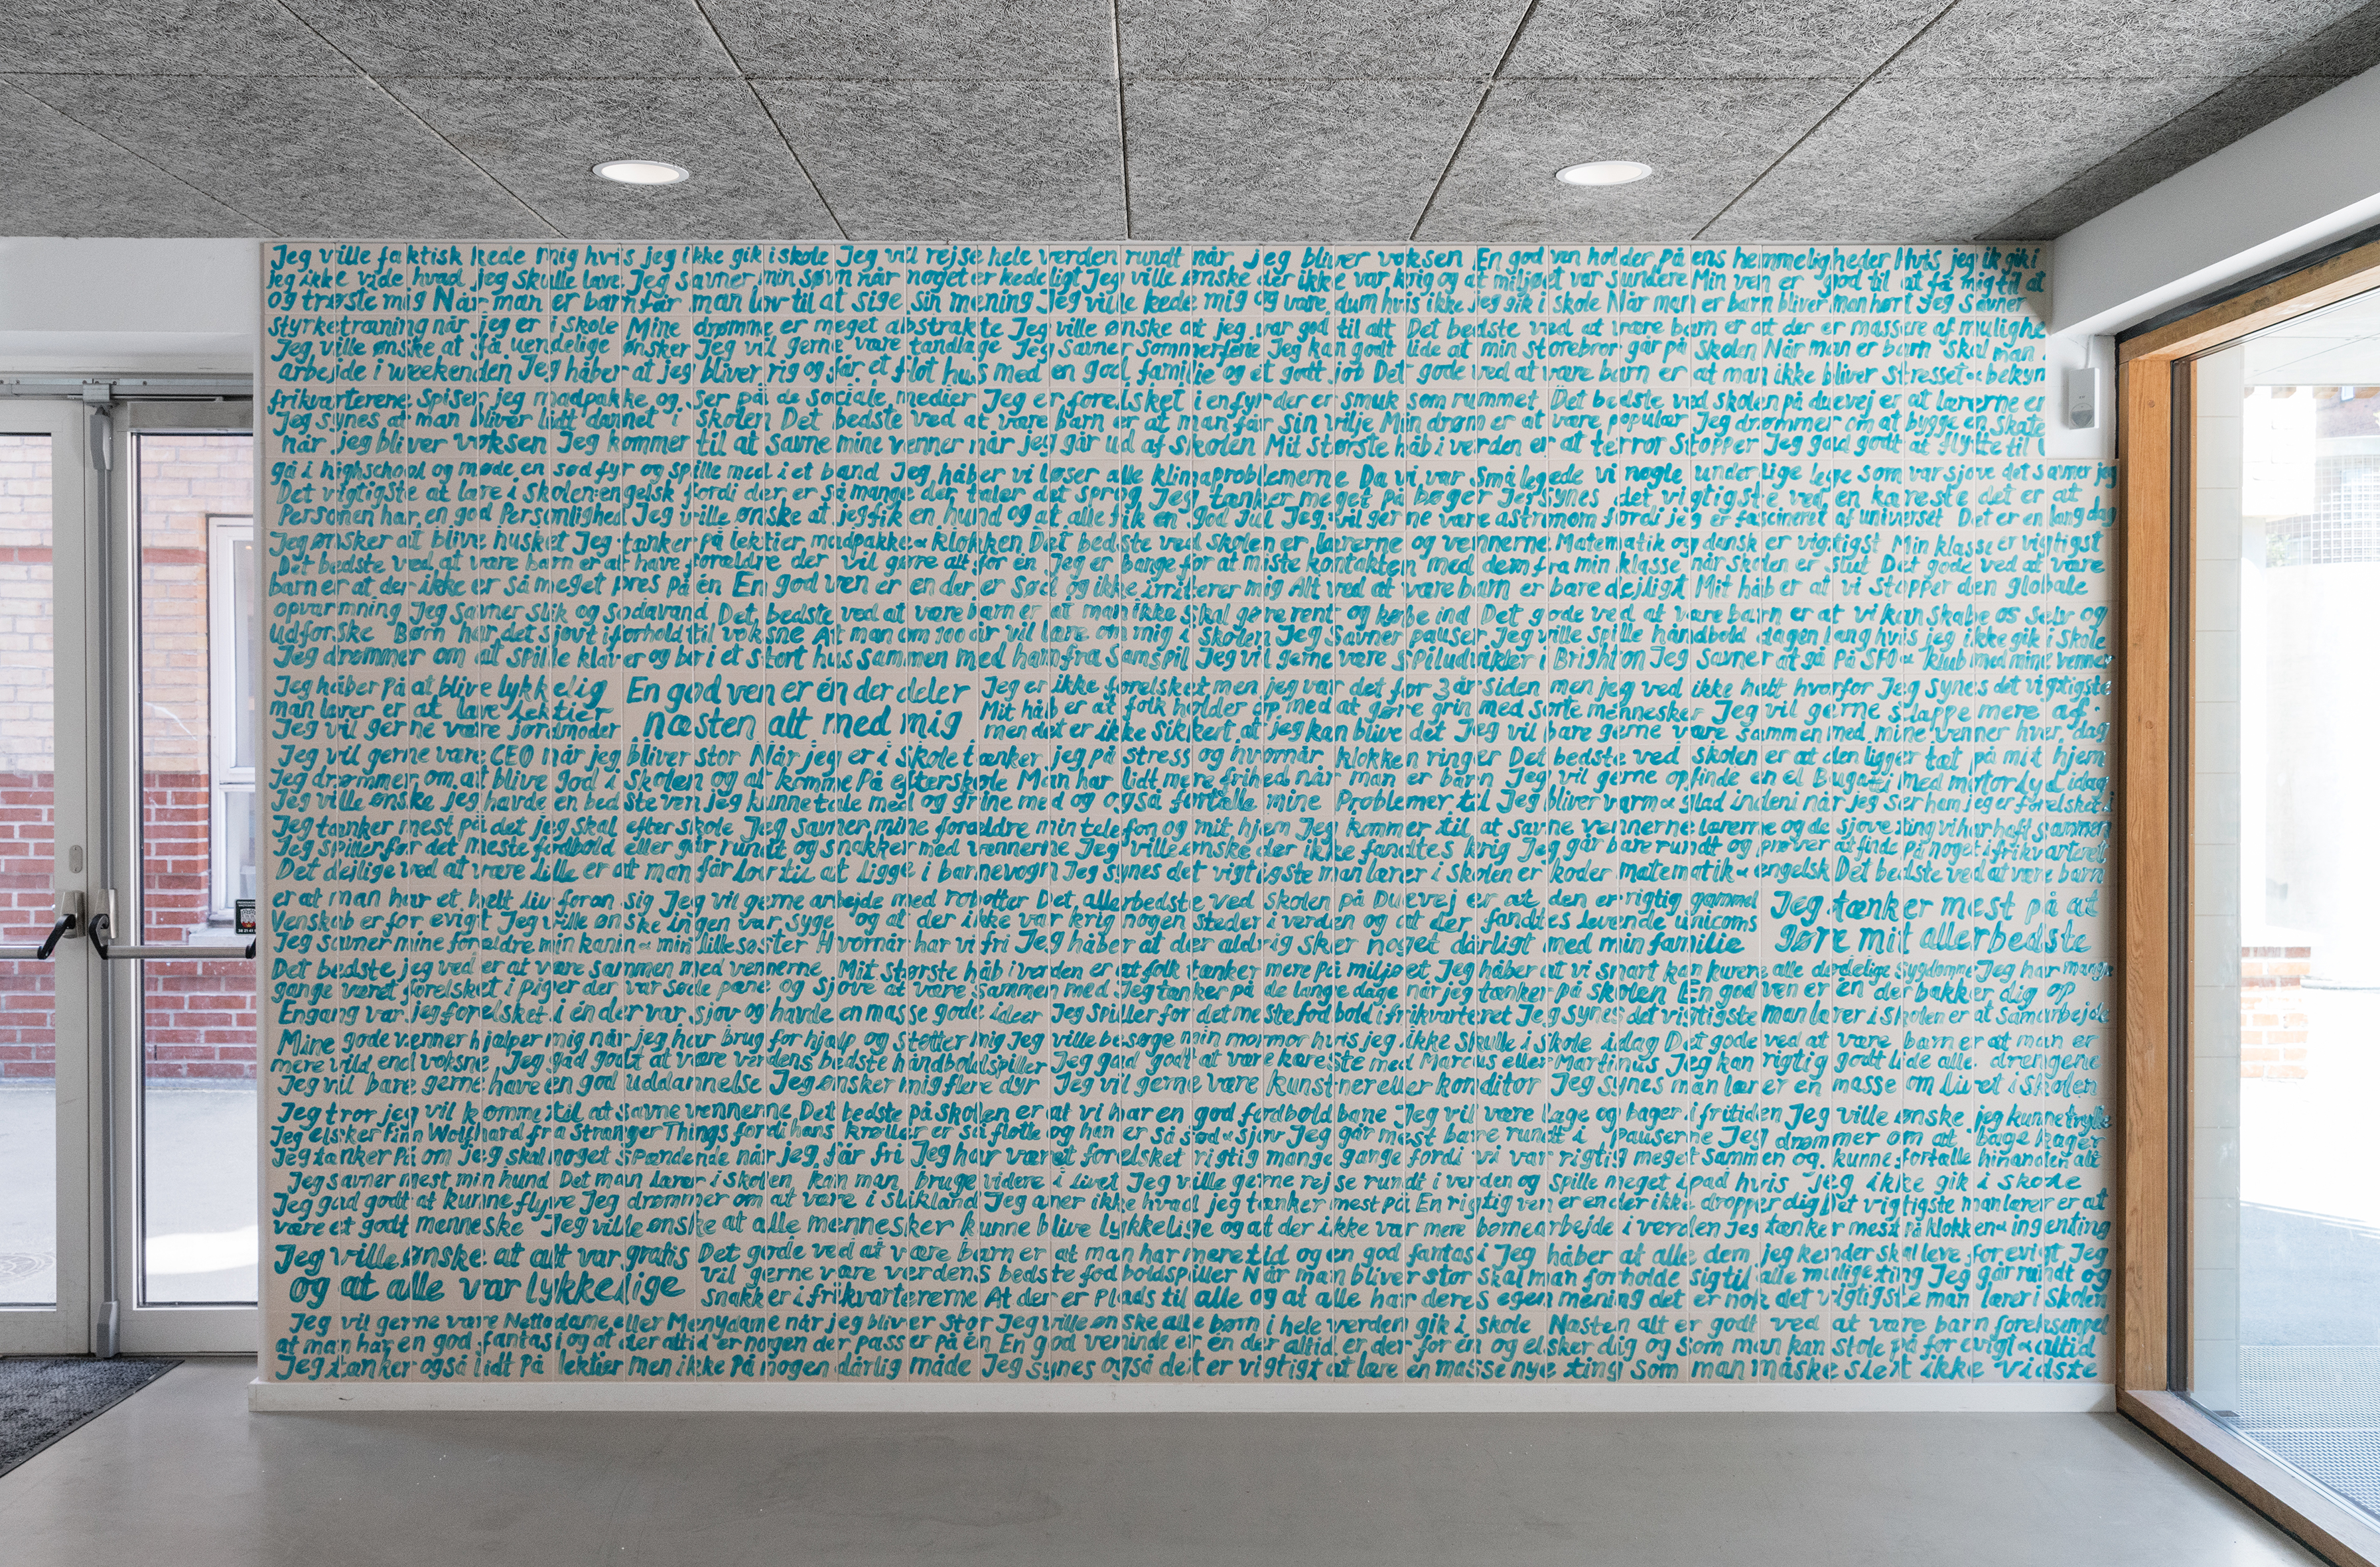 Jeg ville faktisk kede mig hvis jeg ikke gik i skole Jeg vil rejse hele verden rundt når jeg bliver voksen En god ven holder på ens hemmeligheder Hvis jeg ik gik i
jeg ikke vide hvad jeg skulle lave Jeg savner min søvn når noget er kedeligt Jeg ville ønske der ikke var krig og at miljøet var sundere Min ven er god til at få mig til at
og trøste mig Når man er barn får man lov til at sige sin mening Jeg ville kede mig og være dum hvis ikke jeg gik i skole Når man er barn bliver man hørt Jeg savner
styrketræning når jeg er i skole Mine drømme er meget abstrakte Jeg ville ønske at jeg var god til alt Det bedste ved at være barn er at der er massere af mulighe
Jeg ville ønske at få uendelige ønsker Jeg vil gerne være tandlæge Jeg savner sommerferie Jeg kan godt lide at min storebror går på skolen Når man er barn skal man
arbejde i weekenden Jeg håber at jeg bliver rig og får et flot hus med en god familie og et godt job Det gode ved at være barn er at man ikke bliver stresset & bekym
frikvarterene spiser jeg madpakke og ser på de sociale medier Jeg er forelsket i en fyr der er smuk som rummet Det bedste ved skolen på duevej er at lærerne er
Jeg synes at man bliver lidt dannet i skolen Det bedste ved at være barn er at man får sin vilje Min drøm er at være populær Jeg drømmer om at bygge en skate
når jeg bliver voksen Jeg kommer til at savne mine venner når jeg går ud af skolen Mit største håb i verden er at terror stopper Jeg gad godt at flytte til
gå i highschool og møde en sød fyr og spille med i et band Jeg håber vi løser alle klimaproblemerne Da vi var små legede vi nogle underlige lege som var sjove det savner jeg
Det vigtigste at lære i skolen: engelsk fordi der er så mange der taler det sprog Jeg tænker meget på bøger Jeg synes det vigtigste ved en kæreste det er at
Personen har en god Personlighed Jeg ville ønske at jeg fik en hund og at alle fik en god Jul Jeg vil gerne være astronom fordi jeg er fascineret af universet Det er en lang dag
Jeg ønsker at blive husket Jeg tænker på lektier madpakke & klokken Det bedste ved skolen er lærerne og vennerne Matematik og dansk er vigtigst Min klasse er vigtigst
Det bedste ved at være barn er at have forældre der vil gøre alt for en Jeg er bange for at miste kontakten med dem fra min klasse når skolen er slut Det gode ved at være
barn er at der ikke er så meget pres på én En god ven er en der er sød og ikke irriterer mig Alt ved at være barn er bare dejligt Mit håb er at vi stopper den globale
opvarmning Jeg savner slik og sodavand Det bedste ved at være barn er at man ikke skal gøre rent og købe ind Det gode ved at være barn er at vi kan skabe os selv og
udforske Børn har det sjovt i forhold til voksne At man om 100 år vil lære om mig i skolen Jeg savner pauser Jeg ville spille håndbold dagen lang hvis jeg ikke gik i skole
Jeg drømmer om at spille klaver og bor i et stort hus sammen med ham fra Samspil Jeg vil gerne være spiludvikler i Brighton Jeg savner at gå på SFO & klub med mine venner
Jeg håber på at blive lykkelig
man lærer er at lave lektier
Jeg vil gerne være jordmoder
En god ven er én der deler
næsten alt med mig
Jeg er ikke forelsket men jeg var det for 3 år siden men jeg ved ikke helt hvorfor Jeg synes det vigtigste
Mit håb er at folk holder op med at gøre grin med sorte mennesker Jeg vil gerne slappe mere af
men det er ikke sikkert at jeg kan blive det Jeg vil bare gerne være sammen med mine venner hver dag
Jeg vil gerne være CEO når jeg bliver stor Når jeg er i skole tænker jeg på stress og hvornår klokken ringer Det bedste ved skolen er at den ligger tæt på mit hjem
Jeg drømmer om at blive god i skolen og at komme På efterskole Man har lidt mere frihed når man er barn Jeg vil gerne opfinde en el Bugatti med motorlyd idag
Jeg ville ønske jeg havde en bedste ven jeg kunne tale med og grine med og også fortælle mine Problemer til Jeg bliver varm & glad indeni når jeg ser ham jeg er forelsket i
Jeg tænker mest på det jeg skal efter skole Jeg savner mine forældre min telefon og mit hjem Jeg kommer til at savne vennerne lærerne og de sjove ting vi har haft sammen
Jeg spiller for det meste fodbold eller går rundt og snakker med vennerne Jeg ville ønske der ikke fandtes krig Jeg går bare rundt og prøver at finde på noget i frikvarteret
Det dejlige ved at være lille er at man får lov til at ligge i barnevogn Jeg synes det vigtigste man lærer i skolen er koder matematik & engelsk Det bedste ved at være barn
er at man har et helt liv foran sig Jeg vil gerne arbejde med robotter Det allerbedste ved skolen på Duevej er at den er rigtig gammel
Venskab er for evigt Jeg ville ønske ingen var syge og at der ikke var krig nogen steder i verden og at der fandtes levende unicorns
Jeg savner mine forældre min kanin & min lillesøster Hvornår har vi fri Jeg håber at der aldrig sker noget dårligt med min familie
Jeg tænker mest på at
gøre mit allerbedste
Det bedste jeg ved er at være sammen med vennerne Mit største håb i verden er at folk tænker mere på miljøet Jeg håber at vi snart kan kurere alle dødelige sygdomme Jeg har mange
gange været forelsket i piger der var søde pæne og sjove at være sammen med Jeg tænker på de lange dage når jeg tænker på skolen En god ven er en der bakker dig op
Engang var jeg forelsket i én der var sjov og havde en masse gode ideer Jeg spiller for det meste fodbold i frikvarteret Jeg synes det vigtigste man lærer i skolen er at samarbejde
Mine gode venner hjælper mig når jeg har brug for hjælp og støtter mig Jeg ville besøge min mormor hvis jeg ikke skulle i skole idag Det gode ved at være barn er at man er
mere vild end voksne Jeg gad godt at være verdens bedste håndboldspiller Jeg gad godt at være kæreste med Marcus eller Martinus Jeg kan rigtig godt lide alle drengene
Jeg vil bare gerne have en god uddannelse Jeg ønsker mig flere dyr Jeg vil gerne være kunstner eller konditor Jeg synes man lærer en masse om livet i skolen
Jeg tror jeg vil komme til at savne vennerne Det bedste på skolen er at vi har en god fodboldbane Jeg vil være læge og bager i fritiden Jeg ville ønske jeg kunne trylle
Jeg elsker Finn Wolfhard fra Stranger Things fordi hans krøller er så flotte og han er så sød & sjov Jeg går mest bare rundt i pauserne Jeg drømmer om at bage kager
Jeg tænker på om jeg skal noget spændende når jeg får fri Jeg har været forelsket rigtig mange gange fordi vi var rigtig meget sammen og kunne fortælle hinanden alt
Jeg savner mest min hund Det man lærer i skolen kan man bruge videre i livet Jeg ville gerne rejse rundt i verden og spille meget ipad hvis jeg ikke gik i skole
Jeg gad godt at kunne flyve Jeg drømmer om at være i slikland Jeg aner ikke hvad jeg tænker mest på En rigtig ven er en der ikke dropper dig Det vigtigste man lærer er at
være et godt menneske Jeg ville ønske at alle mennesker kunne blive lykkelige og at der ikke var mere børnearbejde i verden Jeg tænker mest på klokken & ingenting
Jeg ville ønske at alt var gratis
og at alle var lykkelige
Det gode ved at være barn er at man har mere tid og en god fantasi Jeg håber at alle dem jeg kender skal leve for evigt Jeg
vil gerne være verdens bedste fodboldspiller Når man bliver stor skal man forholde sig til alle mulige ting Jeg går rundt og
snakker i frikvartererne At der er Plads til alle og at alle har deres egen mening det er nok det vigtigste man lærer i skolen
Jeg vil gerne være Nettodame eller Menydame når jeg bliver stor Jeg ville ønske alle børn i hele verden gik i skole Næsten alt er godt ved at være barn foreksempel
at man har en god fantasi og at der altid er nogen der passer på én En god veninde er én der altid er der for én og elsker dig og som man kan stole på for evigt & altid
Jeg tænker også lidt på lektier men ikke På nogen dårlig måde Jeg synes også det er vigtigt at lære en masse nye ting som man måske slet ikke vidste